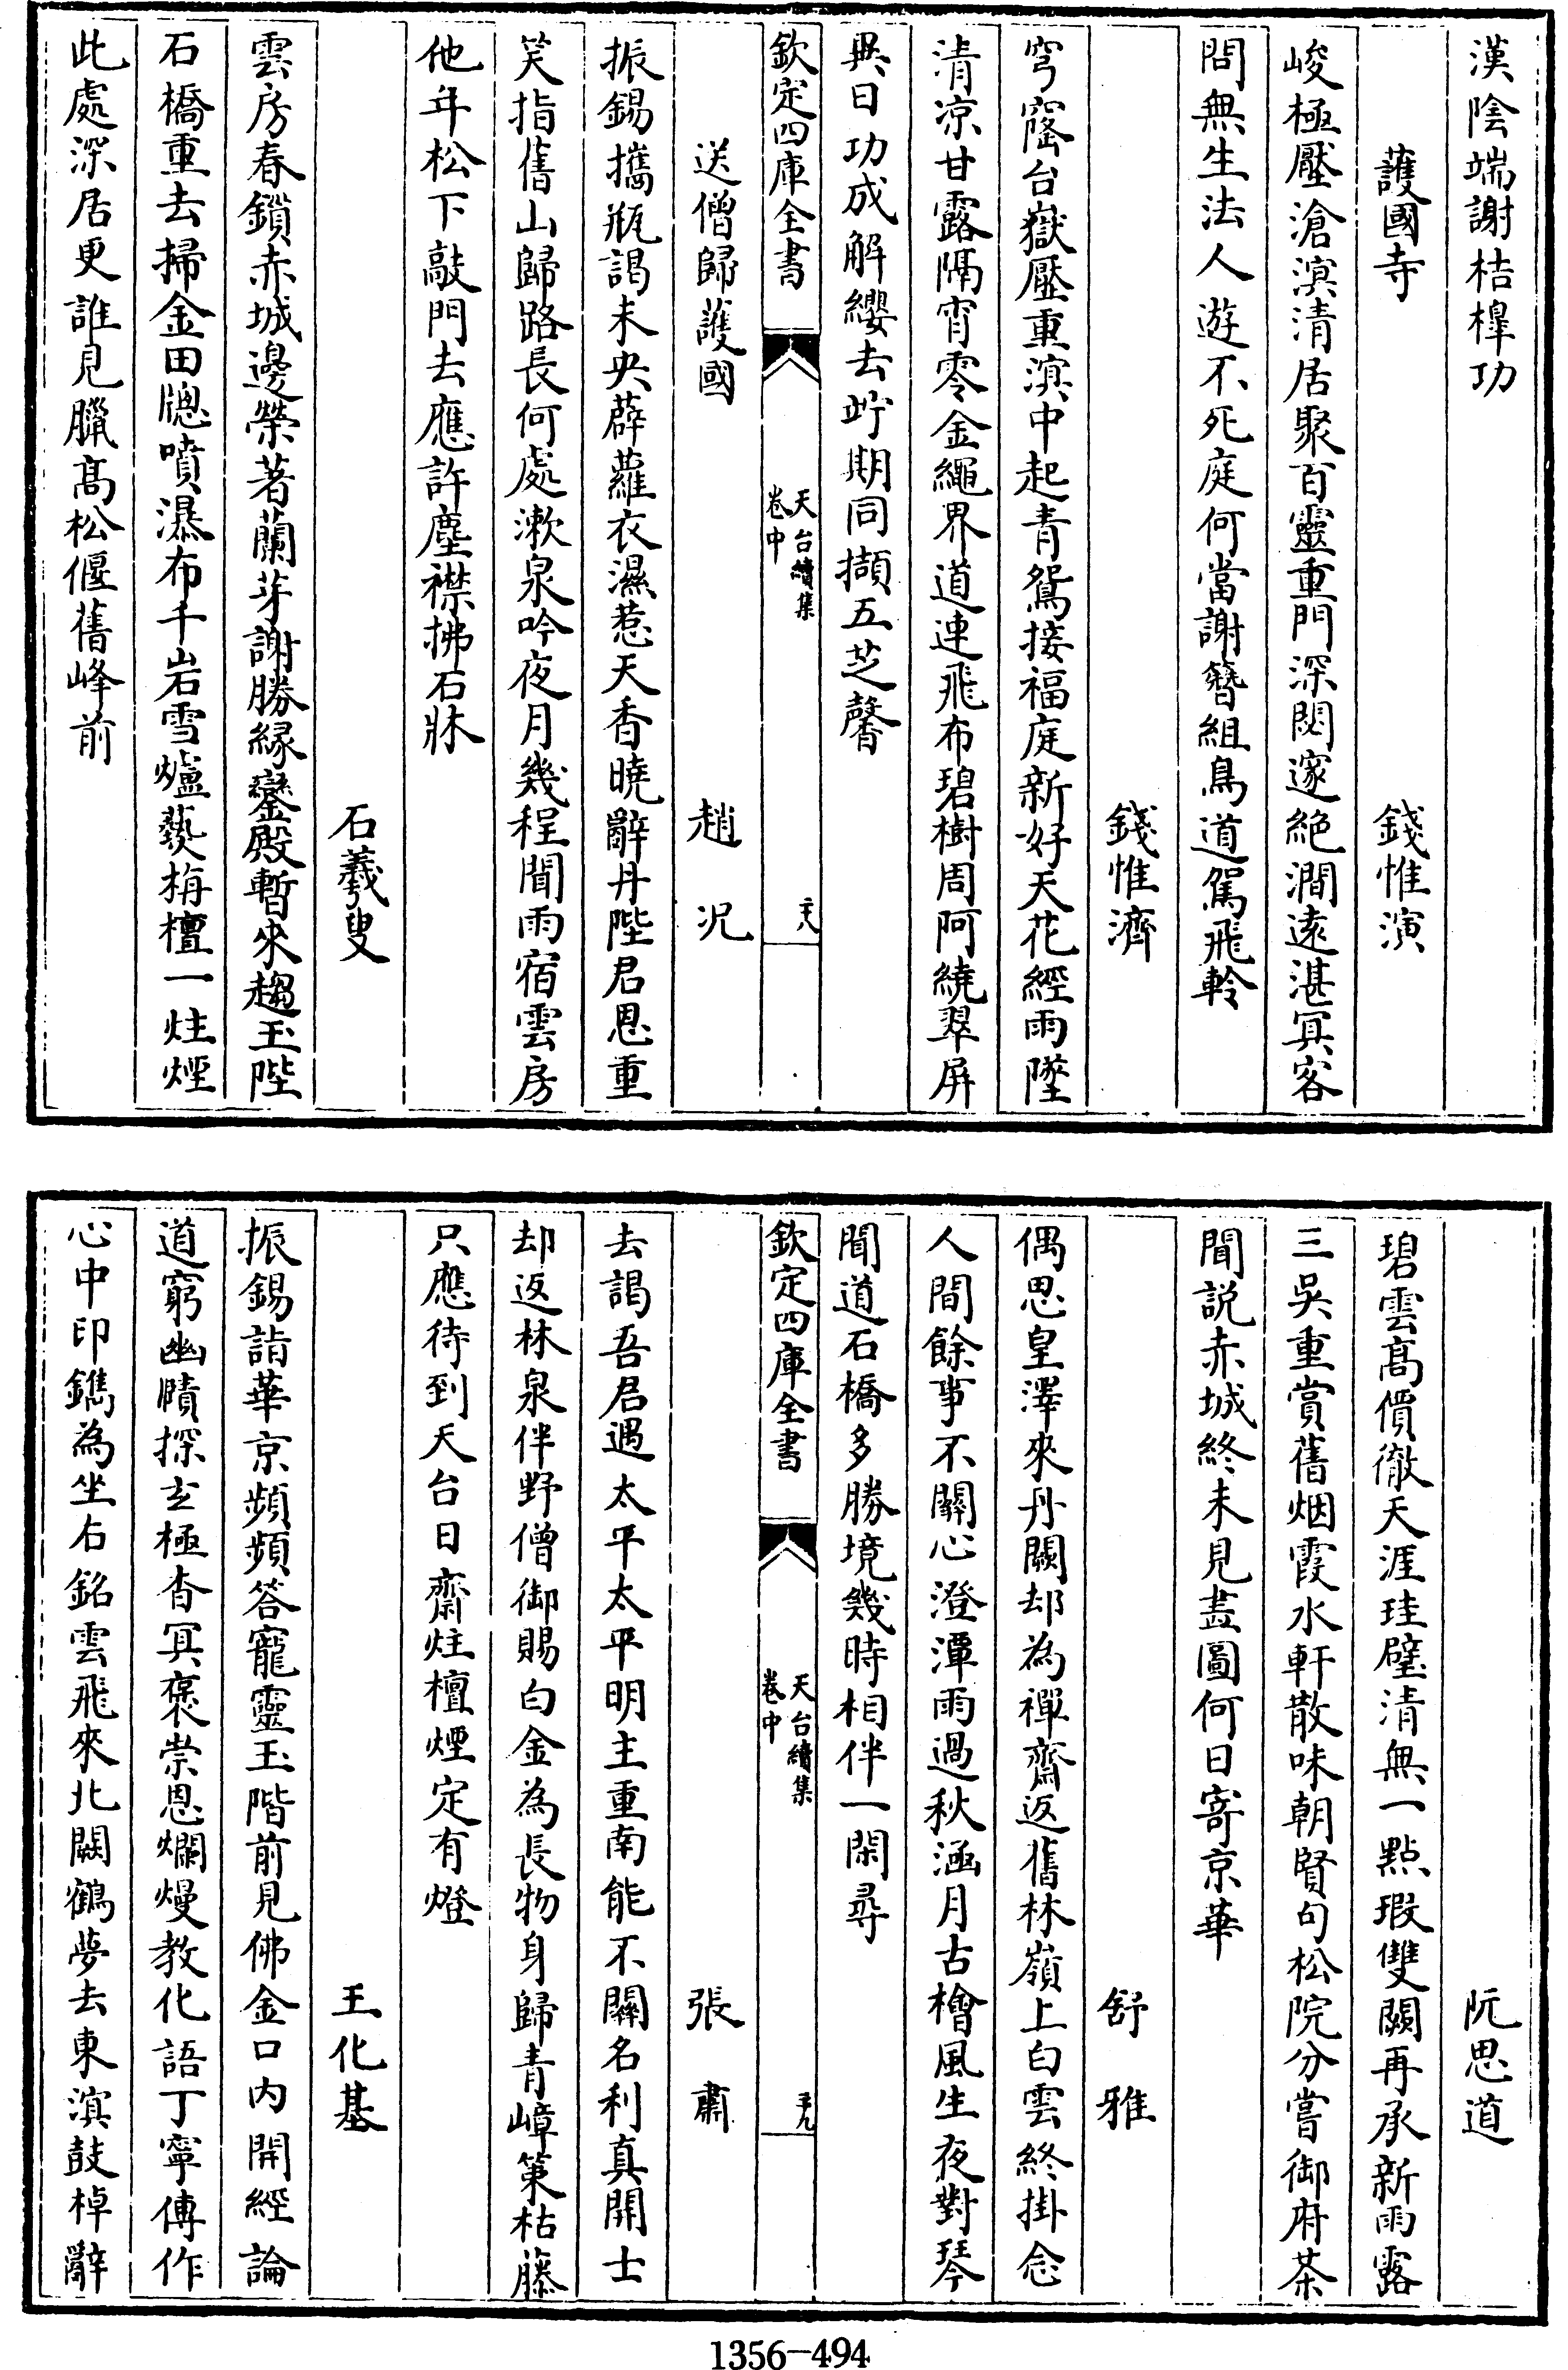 漢陰端謝桔槹功
護國寺　錢惟演
峻極壓滄溟清居聚百靈重門深閟邃絶澗遠湛冥客
問無生法人遊不死庭何當謝簪組鳥道駕飛軨
錢惟濟
穹窿台嶽壓重溟中起青鴛接福庭新好天花經雨墜
清凉甘露隔宵零金繩界道連飛布碧樹周阿繞翠屏
異日功成解纓去竚期同擷五芝馨
欽定四庫全書
天台續集
卷中
二十八
送僧歸護國　趙況
振錫攜瓶謁未央薜蘿衣濕惹天香曉辭丹陛君恩重
笑指舊山歸路長何處漱泉吟夜月幾程聞雨宿雲房
他年松下敲門去應許塵襟拂石牀
石羲叟
雲房春鎖赤城邊榮著蘭芽謝勝緣鑾殿暫來趨玉陛
石橋重去掃金田牕噴瀑布千岩雪爐爇栴檀一炷煙
此處深居更誰見臘髙松偃舊峰前
阮思道
碧雲髙價徹天涯珪璧清無一點瑕雙闕再承新雨露
三吳重賞舊烟霞水軒散味朝賢句松院分嘗御府茶
聞説赤城終未見畫圖何日寄京華
舒雅
偶思皇澤來丹闕却為禪齋返舊林嶺上白雲終掛念
人間餘事不關心澄潭雨過秋涵月古檜風生夜對琴
聞道石橋多勝境幾時相伴一閑尋
欽定四庫全書
天台續集
卷中
二十九
張肅
去謁吾君遇太平太平明主重南能不關名利真開士
却返林泉伴野僧御賜白金為長物身歸青嶂策枯藤
只應待到天台日齋炷檀煙定有燈
王化基
振錫詣華京頻頻答寵靈玉階前見佛金口内開經論
道窮幽賾探玄極杳冥褒崇恩爛熳教化語丁寧傳作
心中印鐫為坐右銘雲飛來北闕鶴夢去東溟鼓棹辭
1356-494